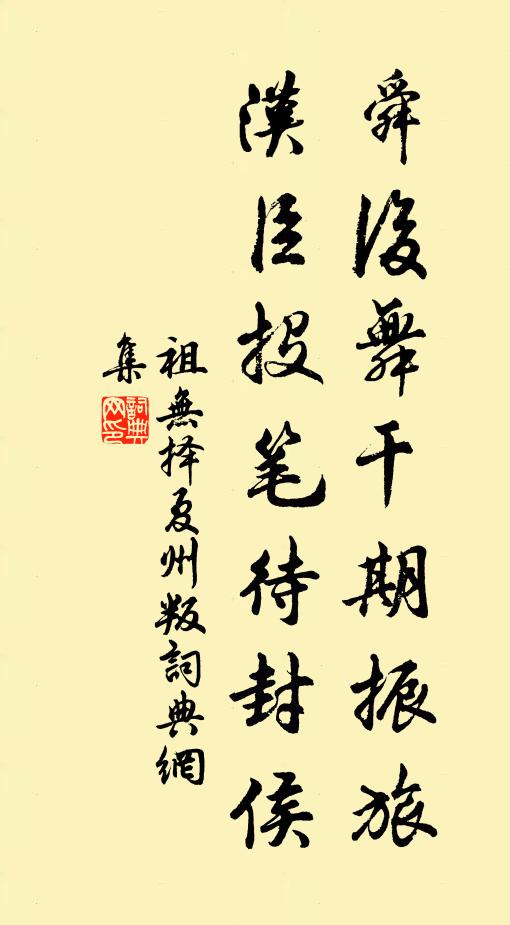 舜後舞干期振旅
漢臣投笔待封侯
祖無择夏州叛詞典網
集
詞典
网印